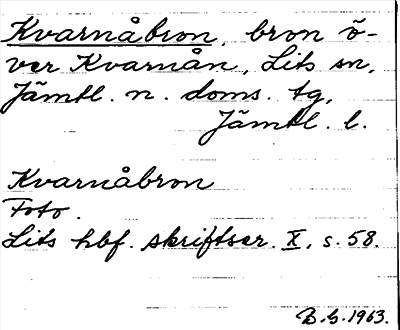 Kvarnåbron, bron ö-
ver Kvarnån, Lits sn,
Jämtl. n. doms. tg,
Jämtl. l.
Kvarnåbron
Foto.
Lits hbf. skriftser. X, s. 58.
B.G. 1963.